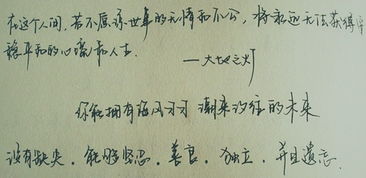 在这个人间，若不原谅世事的无情和不公，将永远无法获得
稳平和的心境和人生.
——大地之灯
你能拥有海风习习 潮来汐往的未来
没有缺失，能够坚忍，善良，独立，并且遗忘.